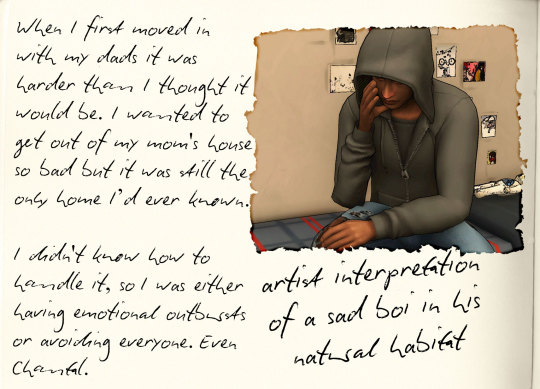 When I first moved in
with my dads it was
harder than I thought it
would be. I wanted to
get out of my mom's house
so bad but it was still the
only home I'd ever known.
I didn't know how to
handle it, so I was either
having emotional outbursts
or avoiding everyone. Even
Chantal.
artist interpretation
of a sad boi in his
natural habitat